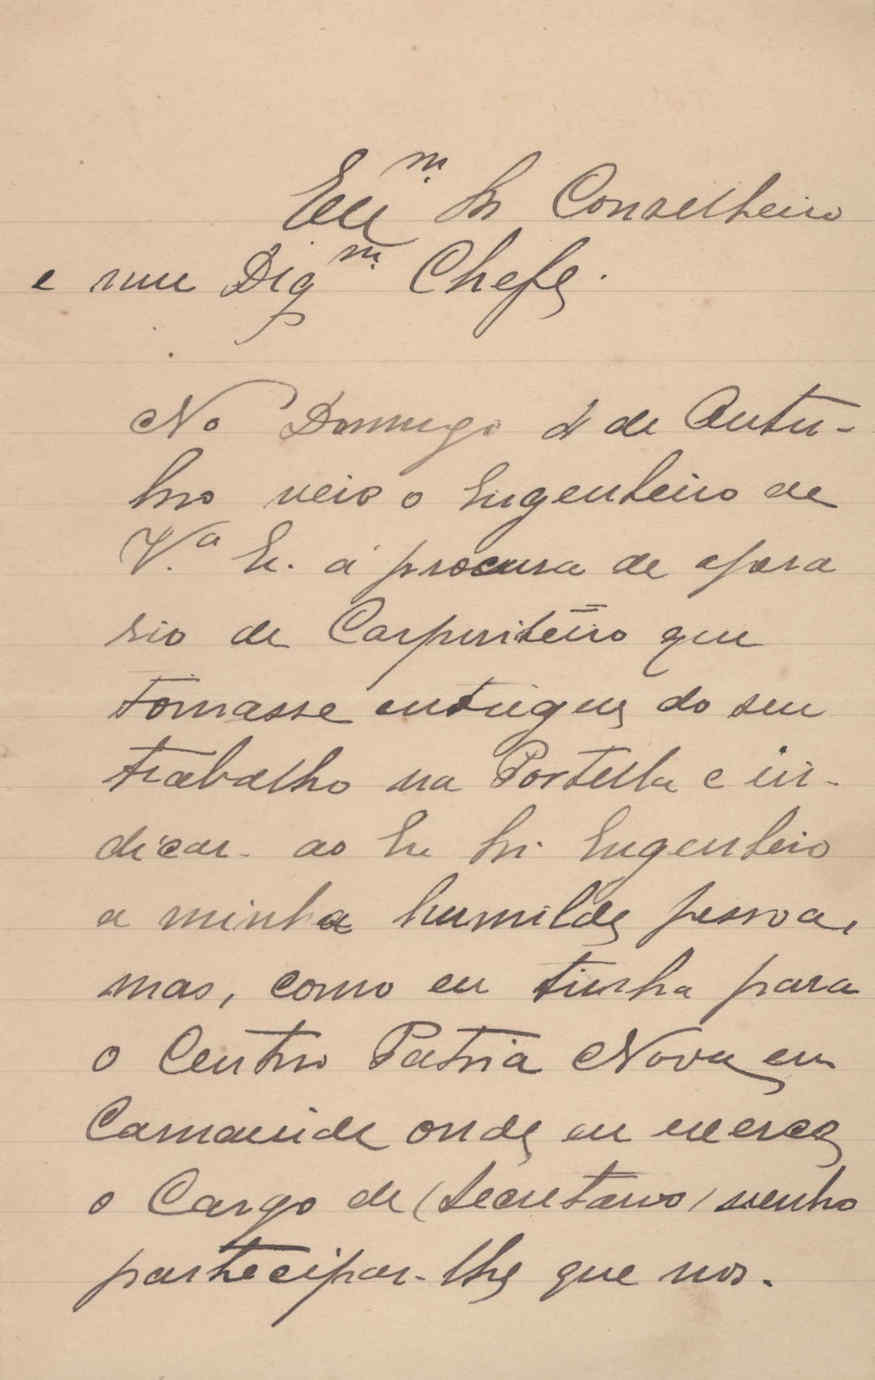 Exmº Sr Conselheiro
e meu Digmº Chefe.
No Domingo 4 de Outu-
bro veio o Engenheiro de
V.ª Ex. á procura de opera
rio de Carpinteiro que
tomasse entrega do seu
trabalho na Portella e in-
dicar- ao Ex Sr. Engenheiro
a minha humilde pessoa,
mas, como eu tinha para
o Centro Patria Nova em
Carnaxide onde eu exerço
o Cargo de (Secretario) venho
partecipar-lhe que nos.